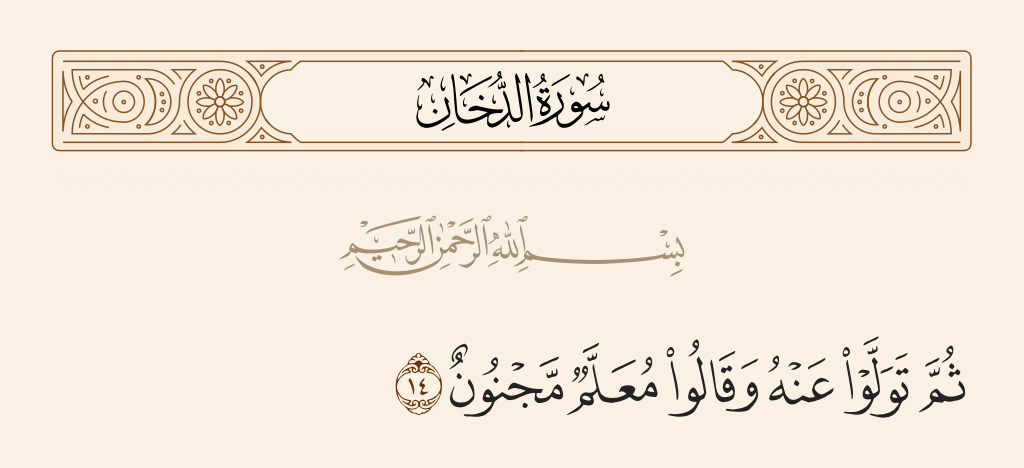 سُورَةُ الدُّخَانِ
بِسْمِ ٱللَّهِ ٱلرَّحْمَٰنِ ٱلرَّحِيمِ
ثُمَّ تَوَلَّوْا۟ عَنْهُ وَقَالُوا۟ مُعَلَّمٌ مَّجْنُونٌ ١٤